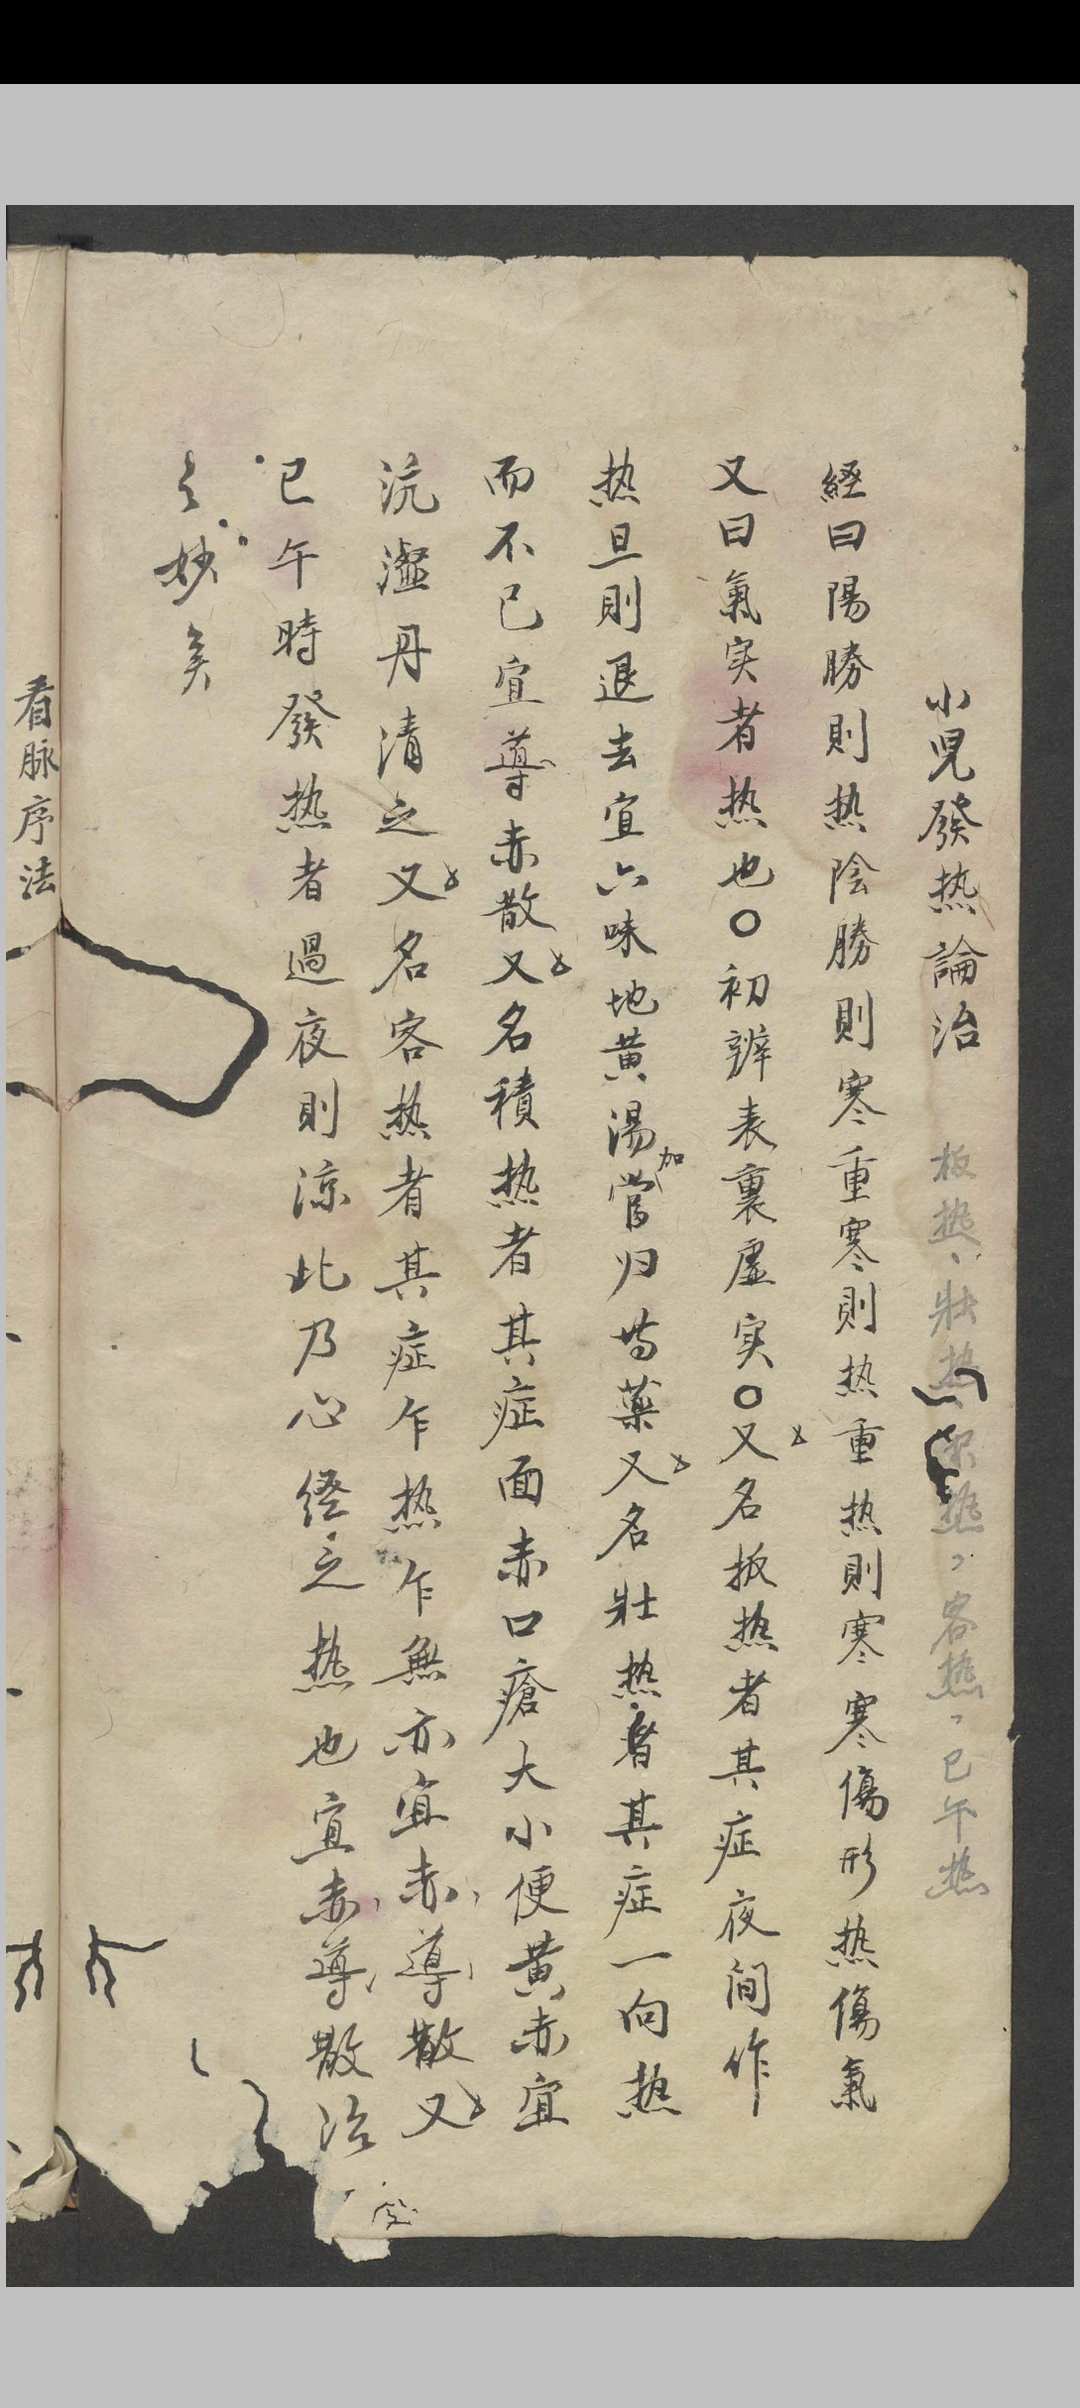 小児發热論治 板热、壯热、积热、客热、巳午热
経曰陽勝則热陰勝則寒重寒則热重热則寒寒傷形热傷氣
又曰氣实者热也○初辨表裏虚实○又名扳热者其症夜间作
热旦則退去宜六味地黄湯加當归芍薬又名壯热者其症一向热
而不已宜導赤散又名積热者其症面赤口瘡大小便黄赤宜
沆瀣丹清之又名客热者其症乍热乍無亦宜赤導散又
巳午時發热者過夜則凉此乃心經之热也宜赤導散治
之妙矣
看脉序法